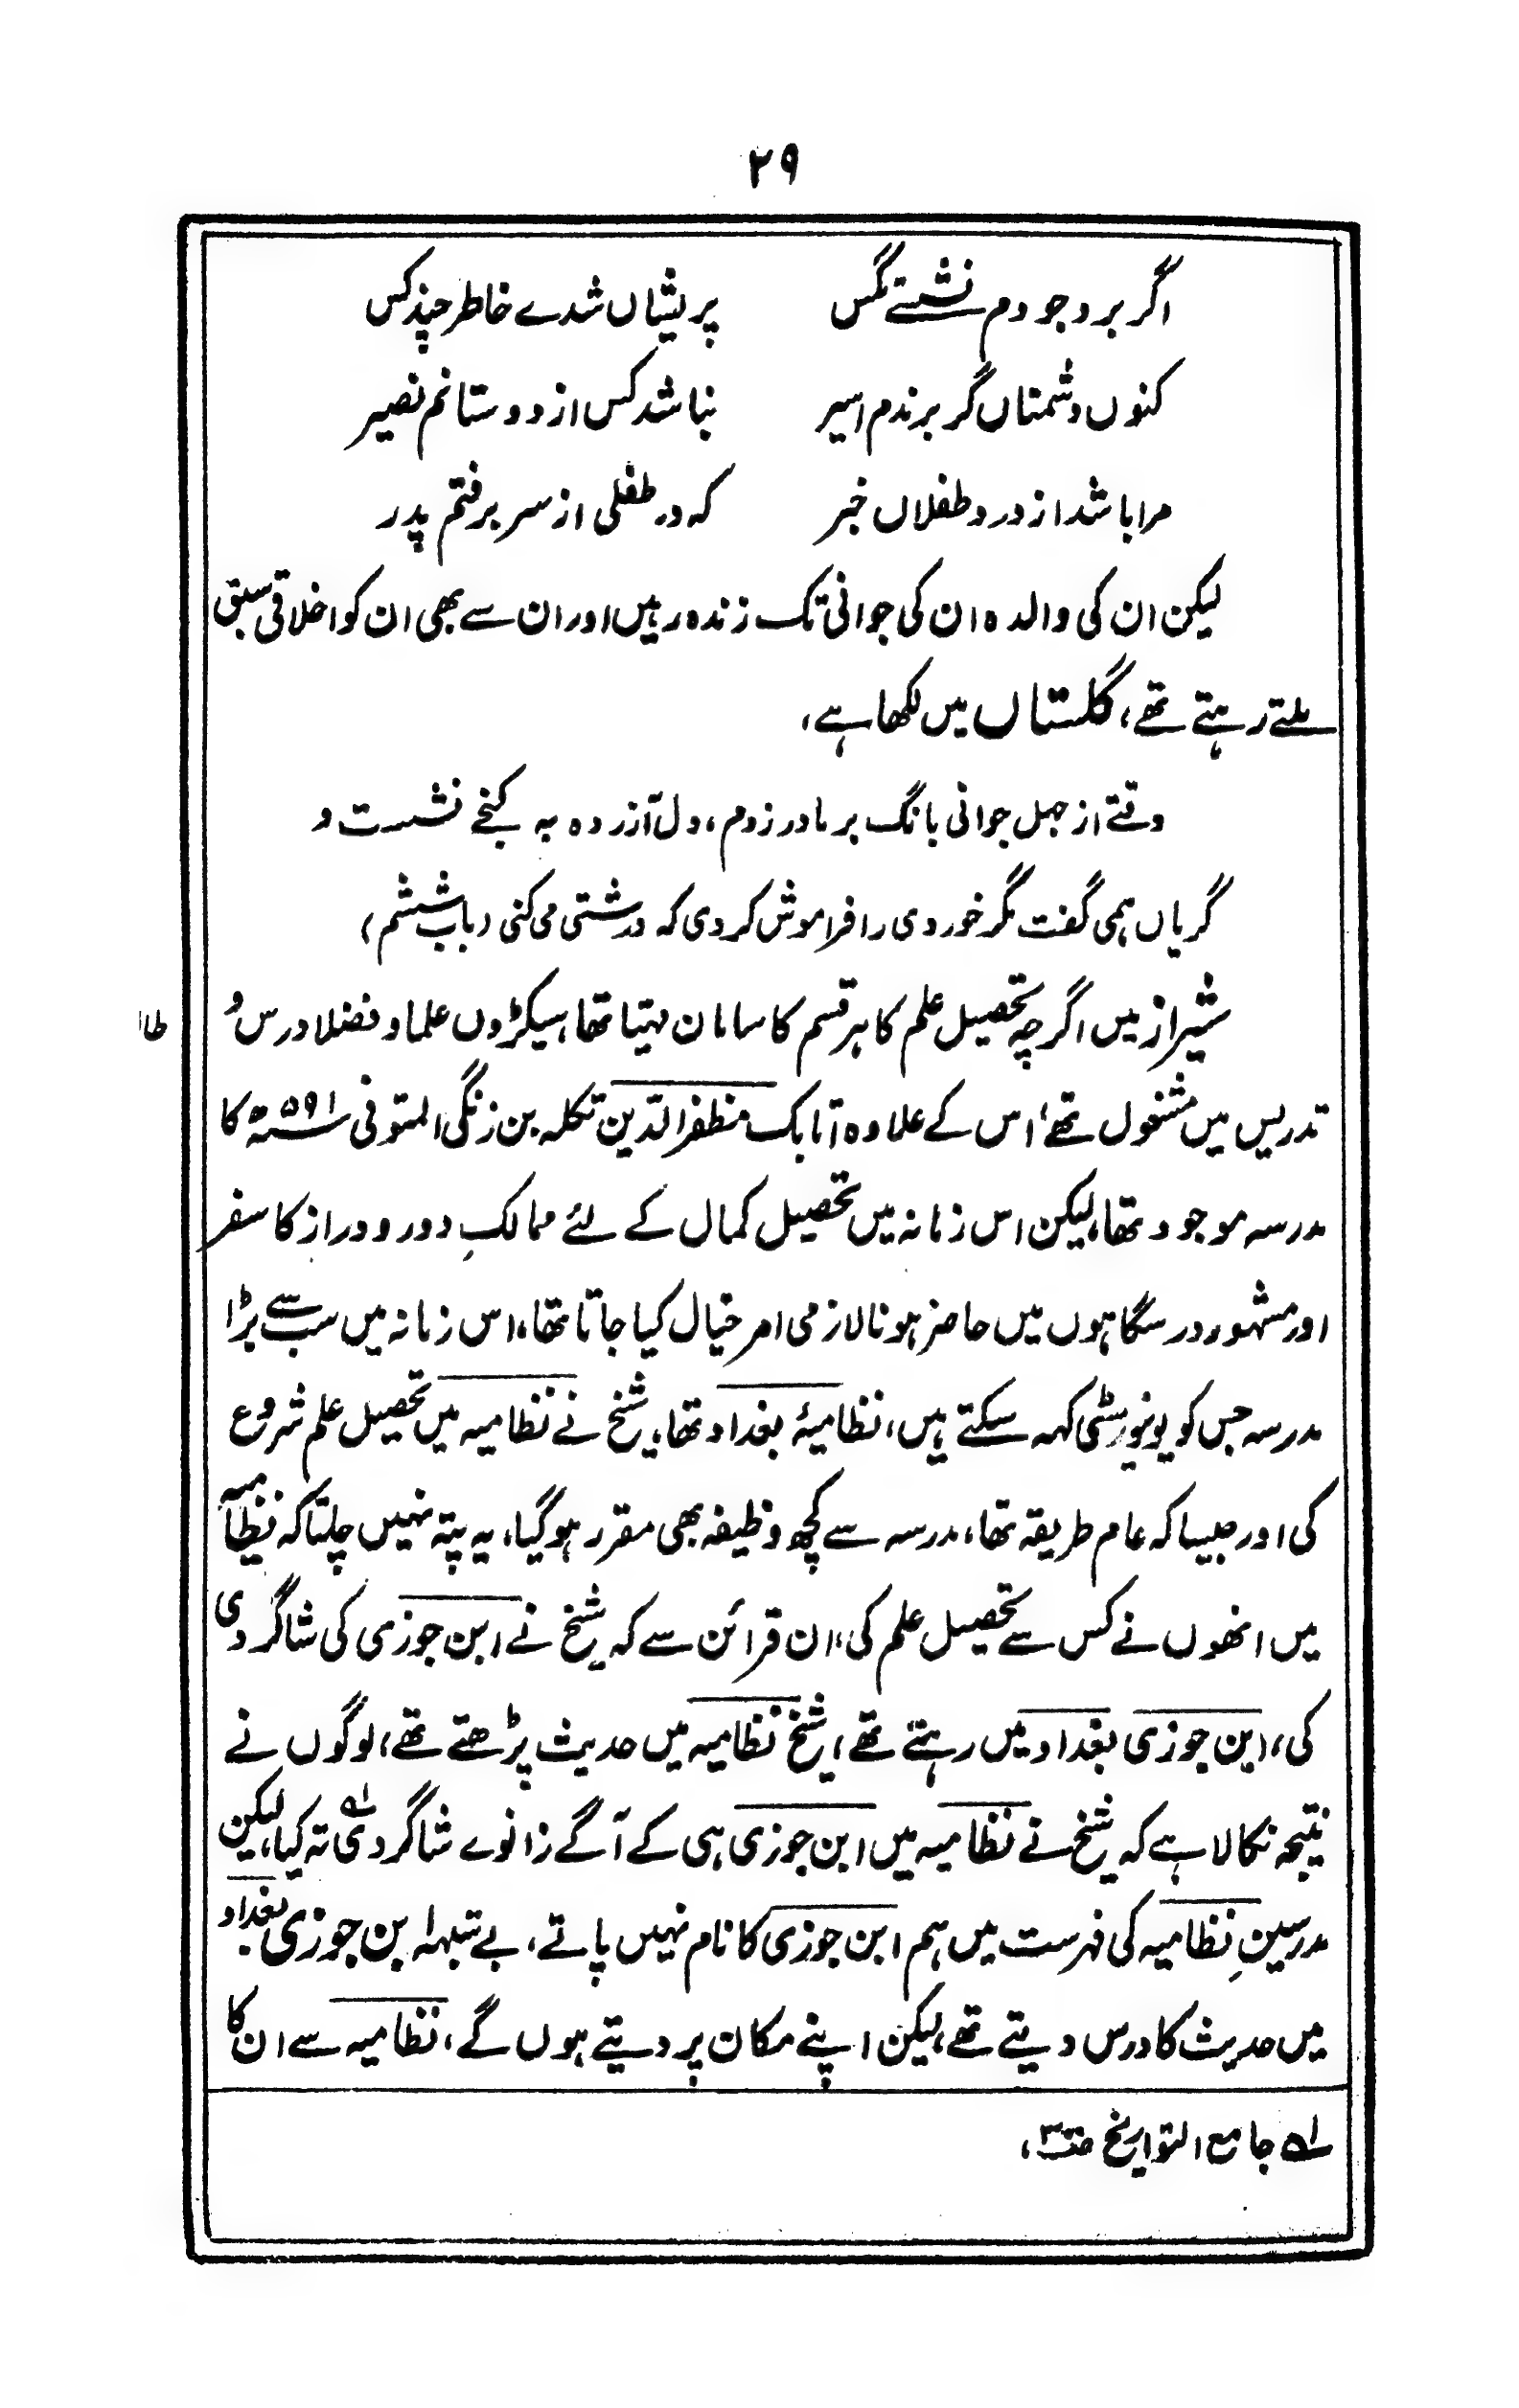 ۲۹
اگر بر وجودم نشستے مگس پریشاں شدے خاطر چند کس
کنوں دشمناں گر برندم اسیر نباشد کس از دوستانم نصیر
مرا باشد از درد طفلاں خبر کہ در طفلی از سر برفتم پدر
لیکن ان کی والدہ ان کی جوانی تک زندہ رہیں اور ان سے بھی ان کو اخلاقی سبق
ملتے رہتے تھے، گلستاں میں لکھا ہے،
وقتے از جہل جوانی بانگ بر مادر زدم، دل آزردہ بہ کنجے نشست و
گریاں ہمی گفت مگر خوردی را فراموش کردی کہ درشتی می کنی (باب ششم)
شیراز میں اگرچہ تحصیل علم کا ہر قسم کا سامان مہیا تھا، سیکڑوں علما و فضلا درس و
طا
تدریس میں مشغول تھے، اس کے علاوہ اتابک مظفر الدّین تکلہ بن زنگی المتوفی ۵۹۱ھ کا
مدرسہ موجود تھا، لیکن اس زمانہ میں تحصیل کمال کے لئے ممالکِ دور و دراز کا سفر
اور مشہور درسگاہوں میں حاضر ہونا لازمی امر خیال کیا جاتا تھا، اس زمانہ میں سب سے بڑا
مدرسہ جس کو یونیورسٹی کہہ سکتے ہیں، نظامیۂ بغداد تھا، شیخ نے نظامیہ میں تحصیل علم شروع
کی اور جیسا کہ عام طریقہ تھا، مدرسہ سے کچھ وظیفہ بھی مقرر ہو گیا، یہ پتہ نہیں چلتا کہ نظامیہ
میں انھوں نے کس سے تحصیل علم کی، ان قرائن سے کہ شیخ نے ابن جوزی کی شاگردی
کی، ابن جوزی بغداد میں رہتے تھے، شیخ نظامیہ میں حدیث پڑھتے تھے، لوگوں نے
نتیجہ نکالا ہے کہ شیخ نے نظامیہ میں ابن جوزی ہی کے آگے زانوے شاگردی تہ کیا، لیکن
مدرسینِ نظامیہ کی فہرست میں ہم ابن جوزی کا نام نہیں پاتے، بے شبہہ ابن جوزی بغداد
میں حدیث کا درس دیتے تھے، لیکن اپنے مکان پر دیتے ہوں گے، نظامیہ سے ان کا
لہ جامع التواریخ